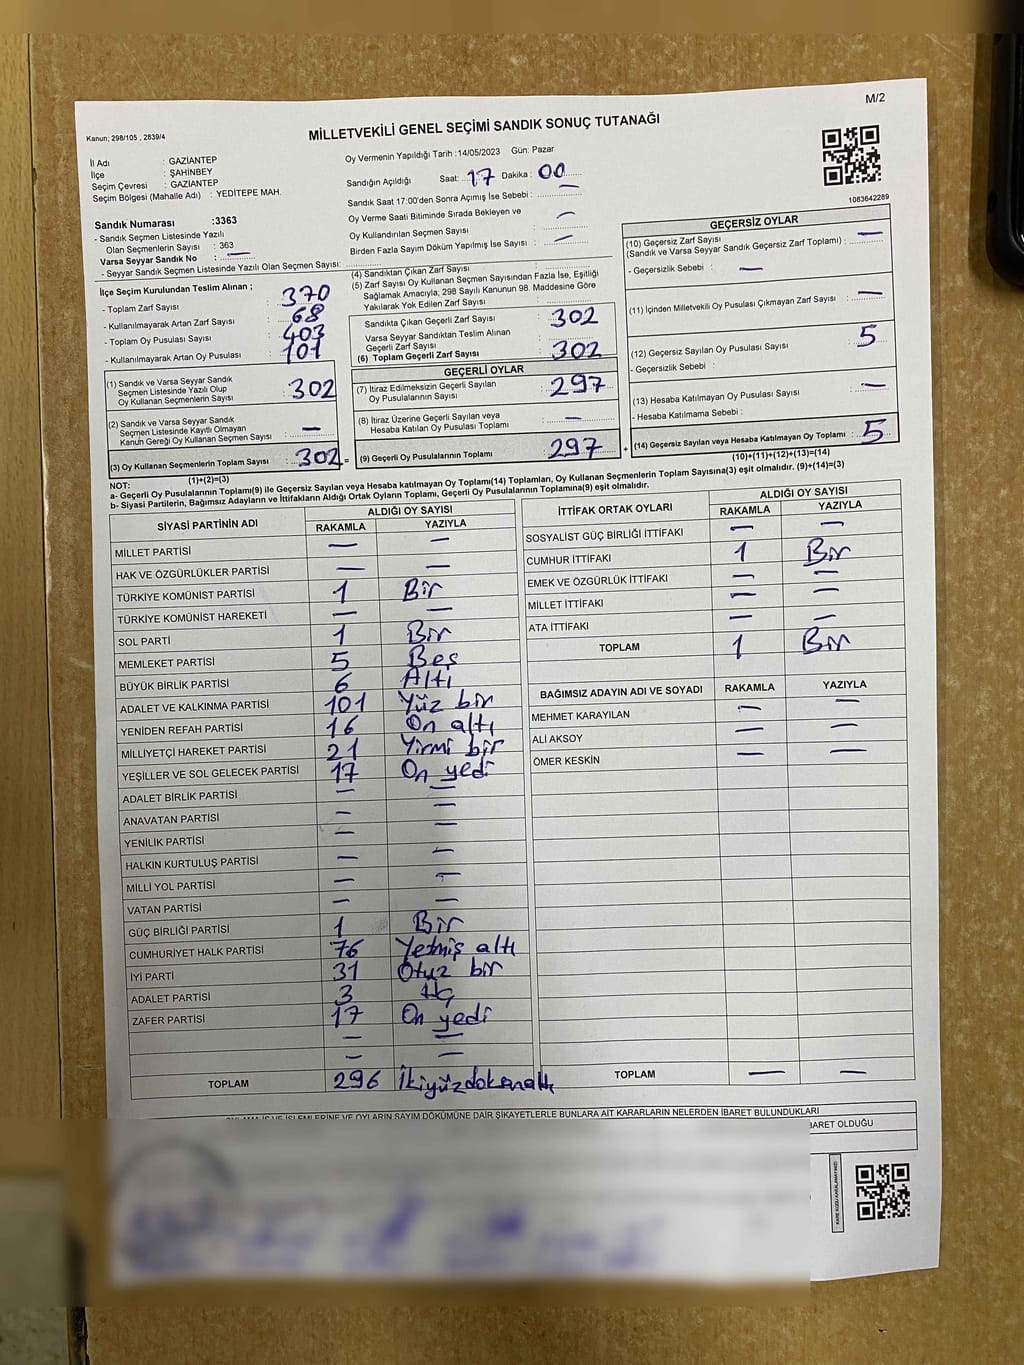 M/2
Kanun; 298/105 , 2839/4
MİLLETVEKİLİ GENEL SEÇİMİ SANDIK SONUÇ TUTANAĞI
İl Adı : GAZİANTEP
İlçe : ŞAHİNBEY
Seçim Çevresi : GAZİANTEP
Seçim Bölgesi (Mahalle Adı) : YEDİTEPE MAH.
Oy Vermenin Yapıldığı Tarih :14/05/2023 Gün: Pazar
Sandığın Açıldığı Saat: 17 Dakika : 00
Sandık Saat 17:00'den Sonra Açımış İse Sebebi : —
Oy Verme Saati Bitiminde Sırada Bekleyen ve
Oy Kullandırılan Seçmen Sayısı : —
Birden Fazla Sayım Döküm Yapılmış İse Sayısı : —
1083642289
Sandık Numarası :3363
- Sandık Seçmen Listesinde Yazılı
Olan Seçmenlerin Sayısı : 363
Varsa Seyyar Sandık No : —
- Seyyar Sandık Seçmen Listesinde Yazılı Olan Seçmen Sayısı:
İlçe Seçim Kurulundan Teslim Alınan ;
- Toplam Zarf Sayısı : 370
- Kullanılmayarak Artan Zarf Sayısı : 68
- Toplam Oy Pusulası Sayısı : 403
- Kullanılmayarak Artan Oy Pusulası : 101
(1) Sandık ve Varsa Seyyar Sandık
Seçmen Listesinde Yazılı Olup
Oy Kullanan Seçmenlerin Sayısı : 302
(2) Sandık ve Varsa Seyyar Sandık
Seçmen Listesinde Kayıtlı Olmayan
Kanun Gereği Oy Kullanan Seçmen Sayısı : —
(3) Oy Kullanan Seçmenlerin Toplam Sayısı : 302 =
(1)+(2)=(3)
(4) Sandıktan Çıkan Zarf Sayısı :
(5) Zarf Sayısı Oy Kullanan Seçmen Sayısından Fazla İse, Eşitliği
Sağlamak Amacıyla, 298 Sayılı Kanunun 98. Maddesine Göre
Yakılarak Yok Edilen Zarf Sayısı :
Sandıkta Çıkan Geçerli Zarf Sayısı : 302
Varsa Seyyar Sandıktan Teslim Alınan
Geçerli Zarf Sayısı :
(6) Toplam Geçerli Zarf Sayısı : 302
GEÇERLİ OYLAR
(7) İtiraz Edilmeksizin Geçerli Sayılan
Oy Pusulalarının Sayısı : 297
(8) İtiraz Üzerine Geçerli Sayılan veya
Hesaba Katılan Oy Pusulaları Toplamı : —
(9) Geçerli Oy Pusulalarının Toplamı : 297 +
GEÇERSİZ OYLAR
(10) Geçersiz Zarf Sayısı
(Sandık ve Varsa Seyyar Sandık Geçersiz Zarf Toplamı) : —
- Geçersizlik Sebebi : —
(11) İçinden Milletvekili Oy Pusulası Çıkmayan Zarf Sayısı : —
(12) Geçersiz Sayılan Oy Pusulası Sayısı : 5
- Geçersizlik Sebebi :
(13) Hesaba Katılmayan Oy Pusulası Sayısı : —
- Hesaba Katılmama Sebebi :
(14) Geçersiz Sayılan veya Hesaba Katılmayan Oy Toplamı : 5
(10)+(11)+(12)+(13)=(14)
NOT:
a- Geçerli Oy Pusulalarının Toplamı(9) ile Geçersiz Sayılan veya Hesaba katılmayan Oy Toplamı(14) Toplamları, Oy Kullanan Seçmenlerin Toplam Sayısına(3) eşit olmalıdır. (9)+(14)=(3)
b- Siyasi Partilerin, Bağımsız Adayların ve İttifakların Aldığı Ortak Oyların Toplamı, Geçerli Oy Pusulalarının Toplamına(9) eşit olmalıdır.
SİYASİ PARTİNİN ADI ALDIĞI OY SAYISI
RAKAMLA YAZIYLA
MİLLET PARTİSİ — —
HAK VE ÖZGÜRLÜKLER PARTİSİ — —
TÜRKİYE KOMÜNİST PARTİSİ 1 Bir
TÜRKİYE KOMÜNİST HAREKETİ — —
SOL PARTİ 1 Bir
MEMLEKET PARTİSİ 5 Beş
BÜYÜK BİRLİK PARTİSİ 6 Altı
ADALET VE KALKINMA PARTİSİ 101 Yüz bir
YENİDEN REFAH PARTİSİ 16 On altı
MİLLİYETÇİ HAREKET PARTİSİ 21 Yirmi bir
YEŞİLLER VE SOL GELECEK PARTİSİ 17 On yedi
ADALET BİRLİK PARTİSİ — —
ANAVATAN PARTİSİ — —
YENİLİK PARTİSİ — —
HALKIN KURTULUŞ PARTİSİ — —
MİLLİ YOL PARTİSİ — —
VATAN PARTİSİ — —
GÜÇ BİRLİĞİ PARTİSİ 1 Bir
CUMHURİYET HALK PARTİSİ 76 Yetmiş altı
İYİ PARTİ 31 Otuz bir
ADALET PARTİSİ 3 Üç
ZAFER PARTİSİ 17 On yedi
— —
— —
TOPLAM 296 İkiyüzdoksanaltı
İTTİFAK ORTAK OYLARI ALDIĞI OY SAYISI
RAKAMLA YAZIYLA
SOSYALİST GÜÇ BİRLİĞİ İTTİFAKI — —
CUMHUR İTTİFAKI 1 Bir
EMEK VE ÖZGÜRLÜK İTTİFAKI — —
MİLLET İTTİFAKI — —
ATA İTTİFAKI — —
TOPLAM 1 Bir
BAĞIMSIZ ADAYIN ADI VE SOYADI RAKAMLA YAZIYLA
MEHMET KARAYILAN — —
ALİ AKSOY — —
ÖMER KESKİN — —
TOPLAM — —
İŞLEMLERİNE VE OYLARIN SAYIM DÖKÜMÜNE DAİR ŞİKAYETLERLE BUNLARA AİT KARARLARIN NELERDEN İBARET BULUNDUKLARI
BARET OLDUĞU
KARE KODU KARALAMAYINIZ!